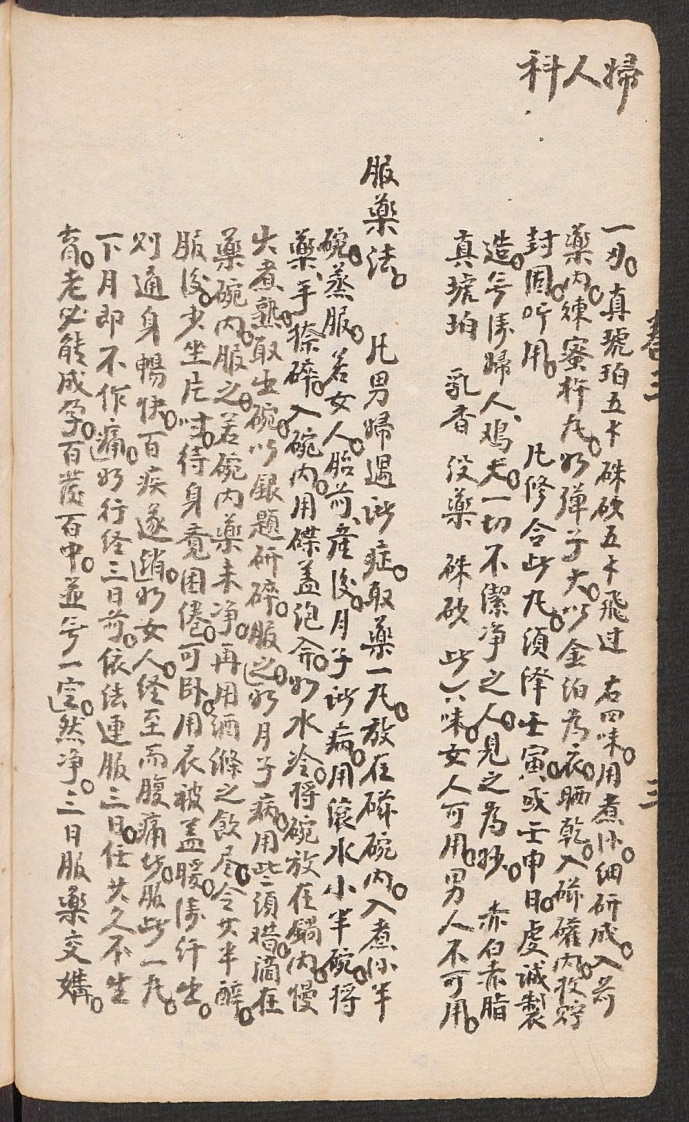 婦人科
一刃。真琥珀五卜硃砂五卜飛过 右四味。用煮氷。细研成。入前
藥内。煉蜜杵丸。如彈子大。以金泊為衣。晒乾。入磁礶内。收貯
封固听用。 凡修合此丸。須择壬寅。或壬申日。虔诚製
造。兮浔婦人、鸡犬。一切不潔净之人。見之為妙。 赤白赤脂
真琥珀 乳香 没藥 硃砂 此六味。女人可用。男人不可用。
服藥法。 凡男婦遇此症。取藥一丸。放在磁碗内。入煮氷半
碗。蒸服。若女人胎前、産後、月子此病。用滾水小半碗。将
藥、手捺碎。入碗内。用碟盖泡。如水冷。将碗放在鍋内。慢
火煮熟。取出碗。以銀題研碎。服之。如月子病。用些須醋。滴在
藥碗内。服之。若碗内藥未净。再用酒滌之飲尽。令其半醉。
服後。少坐片时。待身竟困倦。可卧。用衣被盖暖。浔汗出。
则通身暢快。百疾遂消。如女人。经至而腹痛此。服此一丸。
下月即不作痛。如行经三日前。依法連服三日。任其久不生
育。老必能成孕。百發百中。並兮一空。然净。三日服藥交媾。
卷三
三